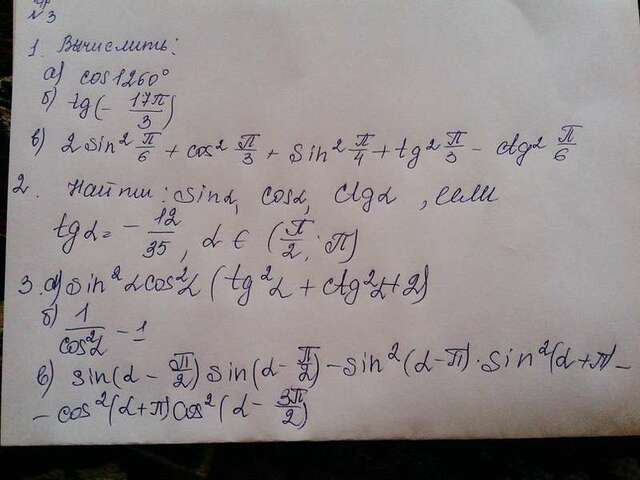 №3
1. Вычислить:
а) cos1260°
б) tg(-17π/3)
в) 2sin²π/6 + cos²π/3 + sin²π/4 + tg²π/3 - ctg²π/6
2. Найти: sinα, cosα, ctgα, если
tgα = -12/35, α ∈ (π/2; π)
3. а) sin²αcos²α(tg²α + ctg²α+2)
б) 1/cos²α - 1
в) sin(α - π/2) sin(α - π/2) - sin²(α-π)·sin²(α+π) -
- cos²(α+π)cos²(α - 3π/2)